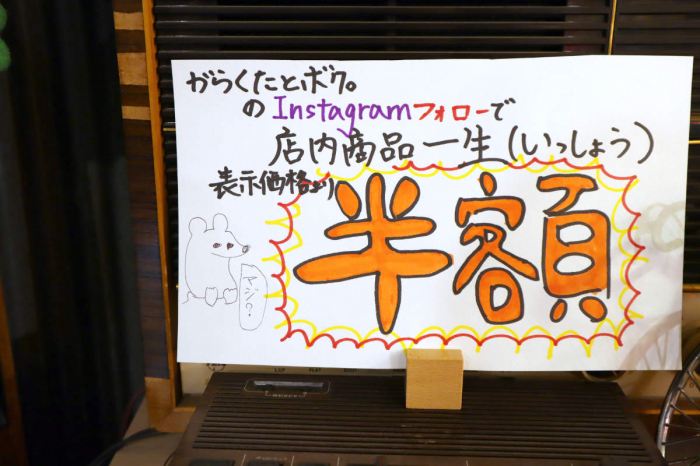 がらくたとボク。
のInstagramフォローで
店内商品一生(いっしょう)
表示価格より
半額
マジ!?